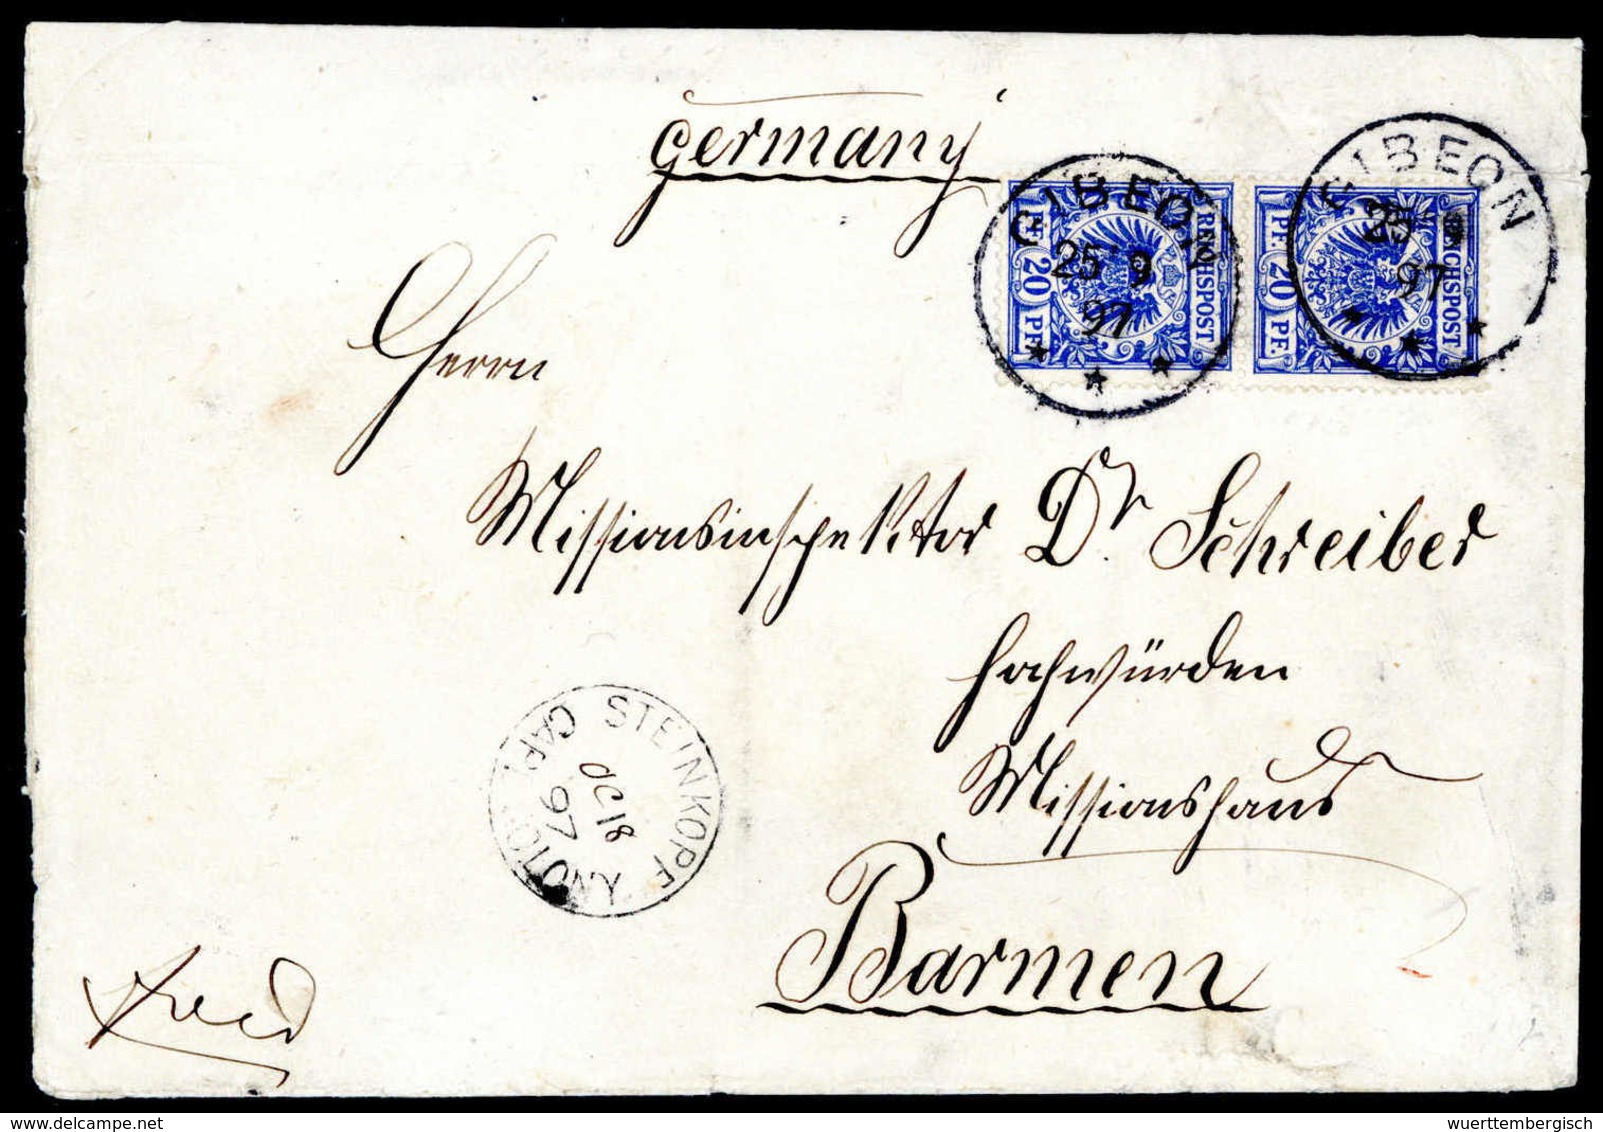 Germany
GIBEON
25 9
97
REICHSPOST
PF. 20 PF.
GIBEON
25 9
97
REICHSPOST
PF. 20 PF.
Herrn
Missionsinspektor Dr. Schreiber
Hochwürden
Missionshaus
Barmen
STEINKOPF
CAPE COLONY
OC 18
97
www.delcampe.net
wuerttembergisch